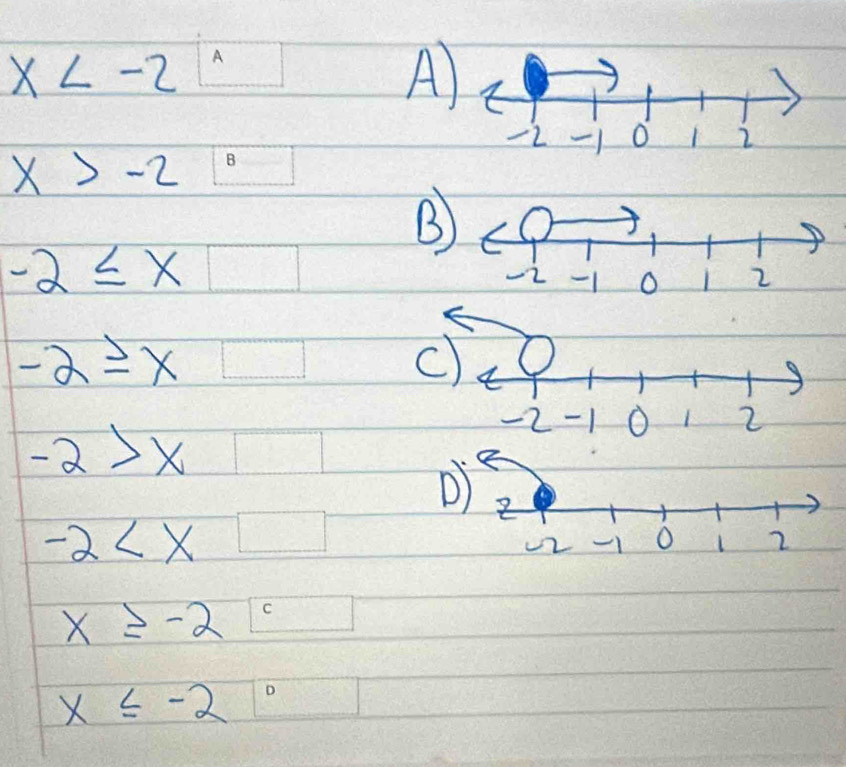 x < -2 A
x > -2 B
-2 ≤ x
-2 ≥ x
-2 > x
-2 < x
x ≥ -2 C
x ≤ -2 D
A)
-2 -1 0 1 2
B)
-2 -1 0 1 2
C)
-2 -1 0 1 2
D)
-2 -1 0 1 2